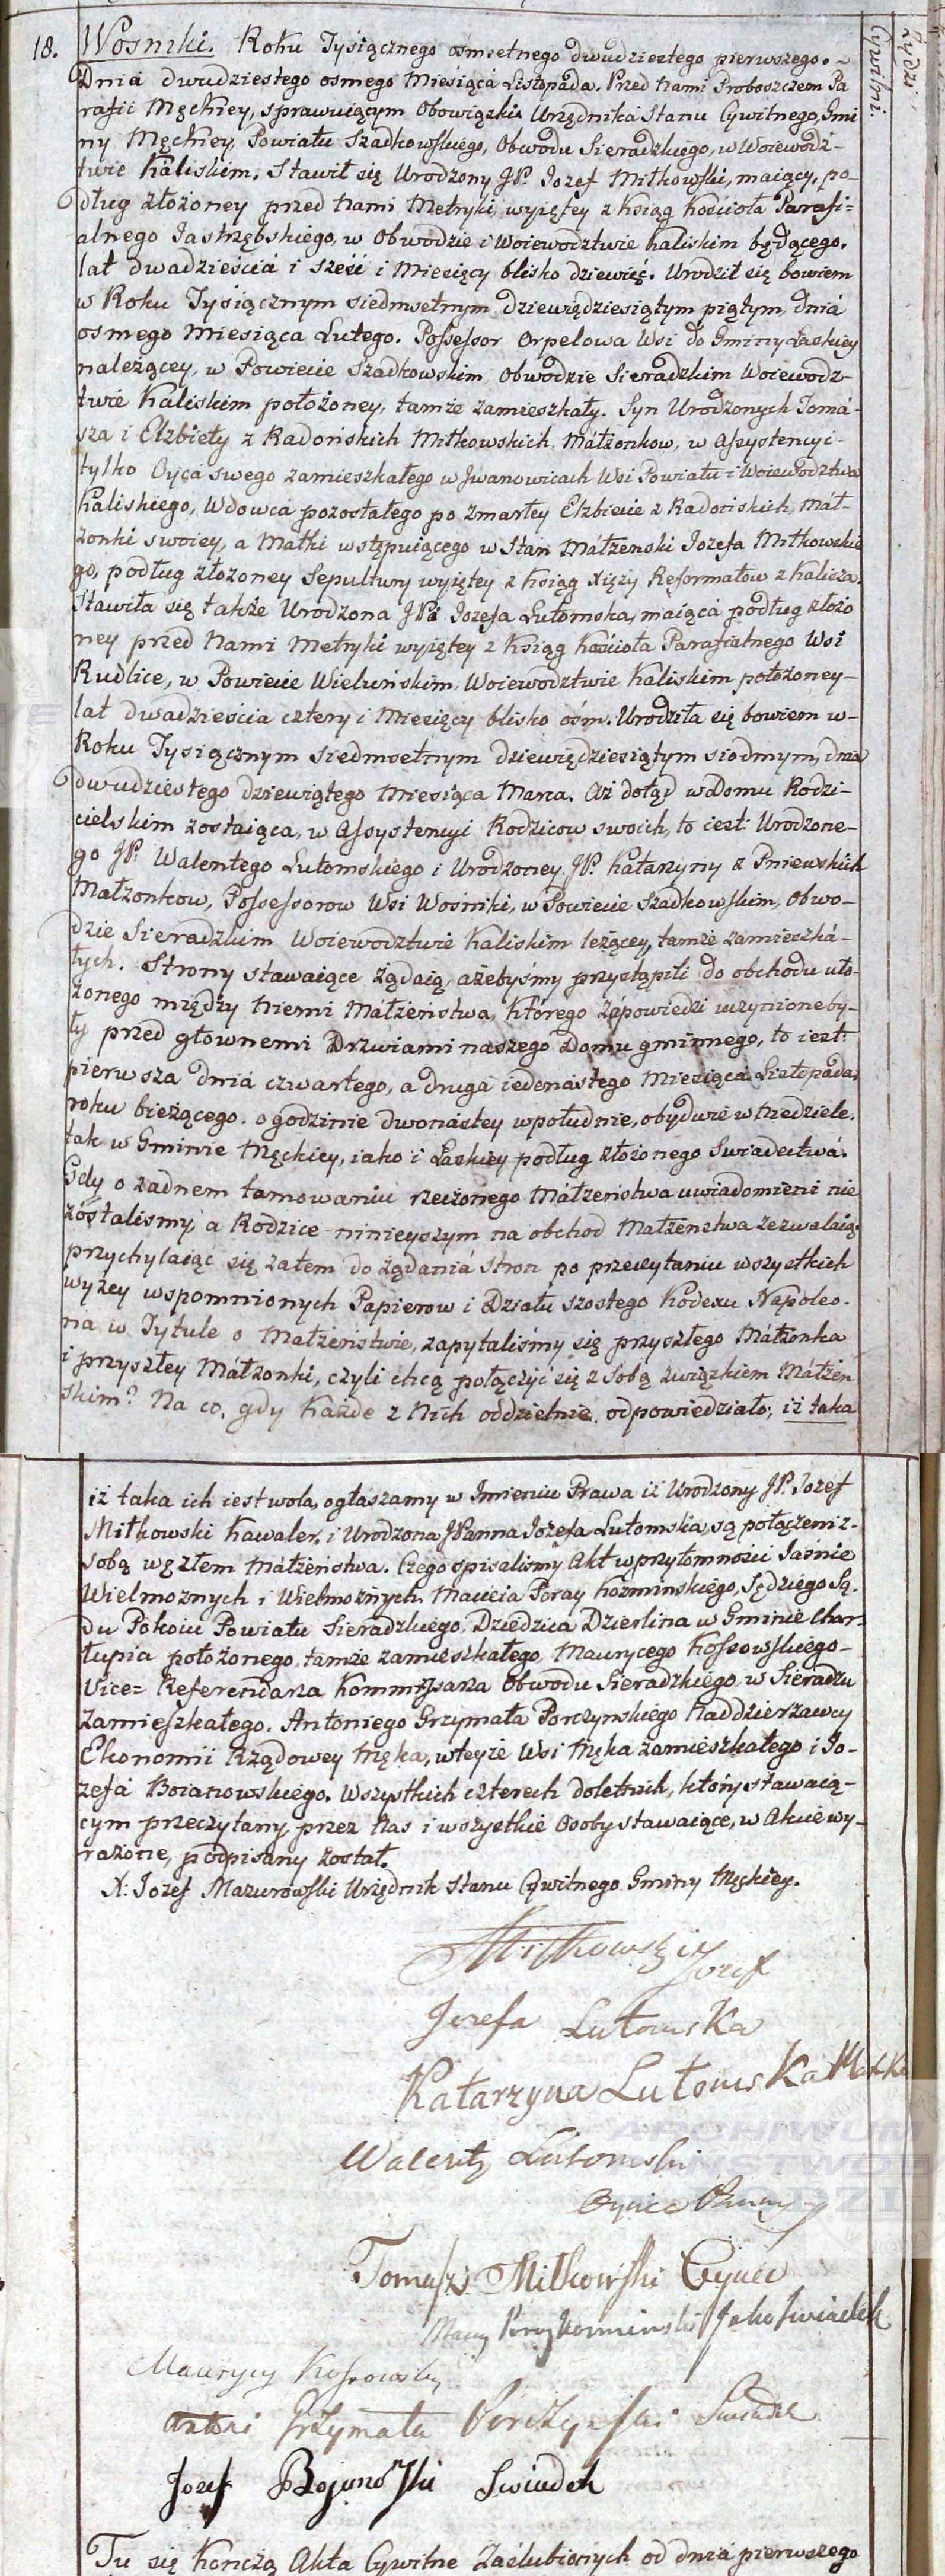 18. Wosniki. Roku Tysiącznego osmsetnego dwudziestego pierwszego. ~
Dnia dwudziestego osmego Miesiąca Listopada. Przed Nami Proboszczem Pa
rafii Męckiey, sprawuiącym Obowiązki Urzędnika Stanu Cywilnego, Gmi
ny Męckiey, Powiatu Szadkowskiego, Obwodu Sieradzkiego, w Woiewodz-
twie Kaliskim. Stawił się Urodzony JP. Jozef Miłkowski, maiący, po-
dług złożoney przed Nami Metryki, wyiętey z Ksiąg Kościoła Parafi=
alnego Jastrzębskiego, w Obwodzie i Woiewodztwie Kaliskim będącego.
lat dwadzieścia i sześć i Miesięcy blisko dziewięć. Urodził się bowiem
w Roku Tysiącznym siedmsetnym dziewiędziesiątym piątym, dnia
osmego Miesiąca Lutego. Possessor Orpelowa Wsi do Gminy Laskiey
należącey, w Powiecie Szadkowskim, Obwodzie Sieradzkim Woiewodz-
twie Kaliskim położoney, tamże zamieszkały. Syn Urodzonych Toma-
sza i Elżbiety z Radońskich Miłkowskich Małżonkow, w Assystencyi-
tylko Oyca swego zamieszkałego w Jwanowicach Wsi Powiatu i Woiewodztwa
Kaliskiego, Wdowca pozostałego po zmarłey Elżbiecie z Radońskich, Mał-
żonki swoiey, a Matki wstępuiącego w Stan Małżenski Jozefa Miłkowskie
go, podług złożoney Sepultury wyiętey z Ksiąg Xięży Reformatow z Kalisza.
Stawiła się także Urodzona JPa Jozefa Lutomska, maiąca podług złożo
ney przed Nami Metryki wyiętey z Ksiąg Kościoła Parafialnego Wsi
Rudlice, w Powiecie Wieluńskim, Woiewodztwie Kaliskim położoney-
lat dwadzieścia cztery i Miesięcy blisko ośm. Urodziła się bowiem w-
Roku Tysiącznym siedmsetnym dziewiędziesiątym siodmym, dnia
dwudziestego dziewiątego Miesiąca Marca. Aż dotąd w Domu Rodzi-
cielskim zostaiąca, w Assystencyi Rodzicow swoich, to iest: Urodzone-
go JP. Walentego Lutomskiego i Urodzoney JP. Katarzyny z Pniewskich
Małżonkow, Possessorow Wsi Wośniki, w Powiecie Szadkowskim, Obwo-
dzie Sieradzkim Woiewodztwie Kaliskim leżącey, tamże zamieszka-
łych. Strony stawaiące żądaią, ażebyśmy przystąpili do obchodu uło-
żonego między niemi Małżeństwa, którego Zapowiedzi uczynione by-
ły przed głownemi Drzwiami naszego Domu gminnego, to iest:
pierwsza dnia czwartego, a druga iedenastego Miesiąca Listopada,
roku bieżącego. o godzinie dwonastey wpołudnie, obydwie w Niedziele.
tak w Gminie Męckiey, iako i Laskiey podług złożonego Swiadectwa.
Gdy o żadnem tamowaniu rzeczonego Małżeństwa uwiadomieni nie
zostalismy, a Rodzice ninieyszym na obchod Małżenstwa zezwalaią.
przychylaiąc się zatem do żądania stron po przeczytaniu wszystkich
wyżey wspomnionych Papierow i Działu szostego Kodexu Napoleo-
na w Tytule o Małżeństwie, zapytaliśmy się przyszłego Małżonka
i przyszłey Małżonki, czyli chcą połączyć się z sobą związkiem Małżeń
skim? Na co, gdy każde z Nich oddzielnie odpowiedziało; iż taka
iż taka ich iest wola, ogłaszamy w Jmieniu Prawa iż Urodzony JP. Jozef
Miłkowski Kawaler, i Urodzona JPanna Jozefa Lutomska, są połączeni z-
sobą węzłem Małżeństwa. Czego spisalismy Akt w przytomności Jaśnie
Wielmożnych i Wielmożnych, Macieia Poray Kozminskiego, Sędziego Są-
du Pokoiu Powiatu Sieradzkiego, Dziedzica Dzierlina w Gminie Char-
łupia położonego, tamże zamieszkałego, Maurycego Kossowskiego-
Vice= Referendarza Kommissarza Obwodu Sieradzkiego, w Sieradzu
zamieszkałego. Antoniego Grzymała Porczynskiego Naddzierzawcy
Ekonomii Rządowey Męka, w teyże Wsi Męka zamieszkałego i Jo-
zefa Boianowskiego. Wszystkich czterech doletnich, który stawaią-
cym przeczytany, przez Nas i wszystkie Osoby stawaiące, w Akcie wy-
rażone, podpisany został.
X: Jozef Mazurowski Urzędnik Stanu Cywilnego Gminy Męckiey.
Miłkowski Jozef
Jozefa Lutomska
Katarzyna Lutomska Matka
Walenty Lutomski
Oyciec Panny
Tomasz Miłkowski Oyciec
Maciey Poray Kozminski Jako swiadek
Maurycy Kossowski
Antoni Grzymała Porczynski Swiadek
Jozef Bojanowski Swiadek
Tu się kończą Akta Cywilne Zaślubionych od dnia pierwszego
Cywilni.
Żydzi
ARCHIWUM